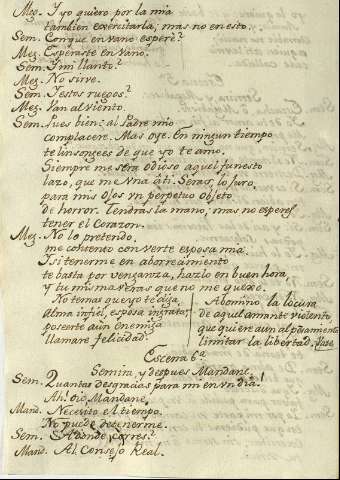 Meg. I yo quiero por la mia
tambien exercitarla, mas no en esto.
Sem. Conque en vano esperè?
Meg. Esperaste en vano.
Sem. I mi llanto?
Meg. No sirve.
Sem. I estos ruegos?
Meg. Van al viento.
Sem. Pues bien: al Padre mio
complacere. Mas oye. En ningun tiempo
te lisongees de que yo te amo.
Siempre me sera odioso aquel funesto
lazo, que me Vna â ti. Seras, lo juro,
para mis ojos vn perpetuo objeto
de horror. Tendras la mano, mas no esperes
tener el Corazon.
Meg. No lo pretendo,
me contento con verte esposa mia.
I si tenerme en aborrecimiento
te basta por venganza, hazlo en buen hora,
y tu misma veras que no me quexo.
No temas que yo te diga,
alma infiel, esposa ingrata;
poserte aun enemiga
llamare felicidad.
Abomino la locura
de aquel amante violento
que quiere aun al pensamiento
limitar la libertad. Vase
Escena 6ª
Semira, y despues Mandane.
Sem. Quantas desgracias para mi en vn dia!
Ah! oie Mandane,
Mand. Necesito el tiempo.
No puede detenerme.
Sem. I Adonde corres?
Mand. Al Consejo Real.